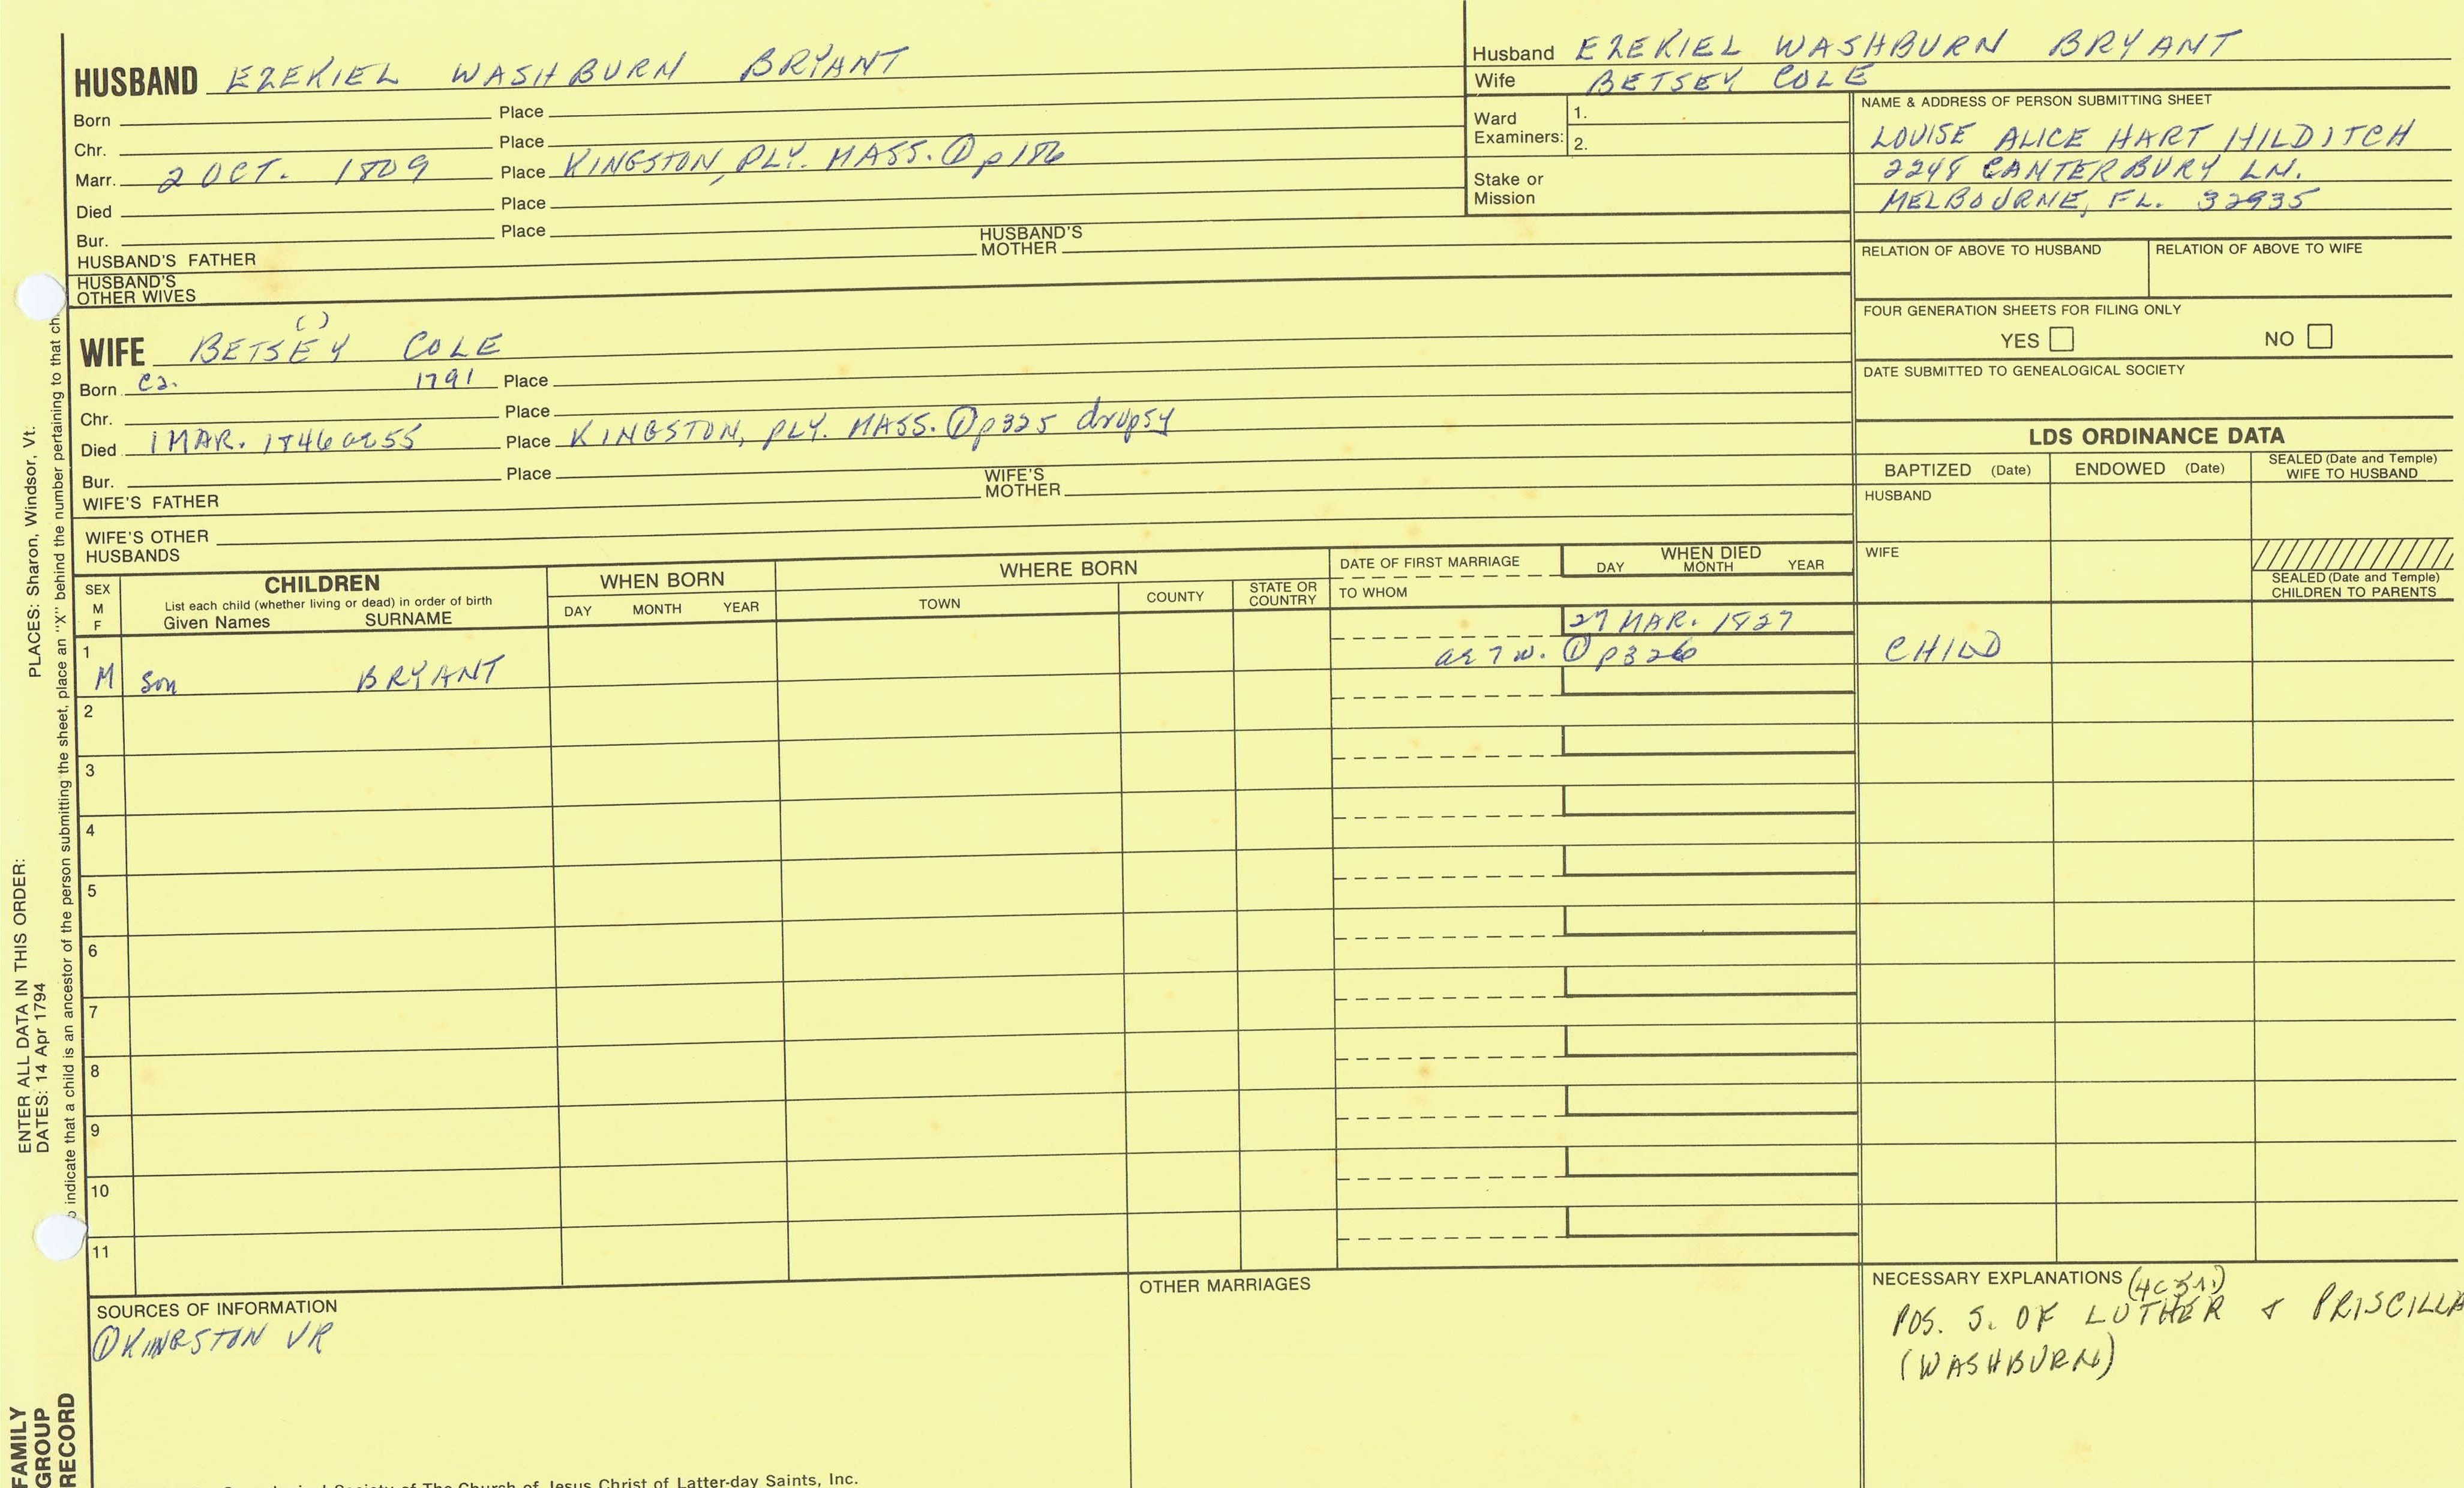 HUSBAND EZEKIEL WASHBURN BRYANT
Born Place
Chr. Place
Marr. 2 OCT. 1809 Place KINGSTON, PLY. MASS. ① p186
Died Place
Bur. Place
HUSBAND'S FATHER HUSBAND'S MOTHER
HUSBAND'S
OTHER WIVES
Husband EZEKIEL WASHBURN BRYANT
Wife BETSEY COLE
Ward
Examiners: 1.
2.
Stake or
Mission
NAME & ADDRESS OF PERSON SUBMITTING SHEET
LOUISE ALICE HART HILDITCH
2248 CANTERBURY LN.
MELBOURNE, FL. 32935
RELATION OF ABOVE TO HUSBAND RELATION OF ABOVE TO WIFE
FOUR GENERATION SHEETS FOR FILING ONLY
YES NO
DATE SUBMITTED TO GENEALOGICAL SOCIETY
( )
WIFE BETSEY COLE
Born ca. 1791 Place
Chr. Place
Died 1 MAR. 1846 ae 55 Place KINGSTON, PLY. MASS. ① p325 dropsy
Bur. Place
WIFE'S FATHER WIFE'S MOTHER
WIFE'S OTHER
HUSBANDS
LDS ORDINANCE DATA
BAPTIZED (Date) ENDOWED (Date) SEALED (Date and Temple)
WIFE TO HUSBAND
HUSBAND
WIFE
SEALED (Date and Temple)
CHILDREN TO PARENTS
SEX
M
F
CHILDREN
List each child (whether living or dead) in order of birth
Given Names SURNAME
WHEN BORN
DAY MONTH YEAR
WHERE BORN
TOWN COUNTY STATE OR
COUNTRY
DATE OF FIRST MARRIAGE
TO WHOM
WHEN DIED
DAY MONTH YEAR
27 MAR. 1827
1
M Son BRYANT ae 7 w. ① p326 CHILD
2
3
4
5
6
7
8
9
10
11
SOURCES OF INFORMATION
① KINGSTON VR
OTHER MARRIAGES
NECESSARY EXPLANATIONS
POS. S. OF LUTHER & PRISCILLA
(WASHBURN)
PLACES: Sharon, Windsor, Vt.
ENTER ALL DATA IN THIS ORDER:
DATES: 14 Apr 1794
indicate that a child is an ancestor of the person submitting the sheet, place an "X" behind the number pertaining to that ch
FAMILY
GROUP
RECORD
Society of The Church of Jesus Christ of Latter-day Saints, Inc.